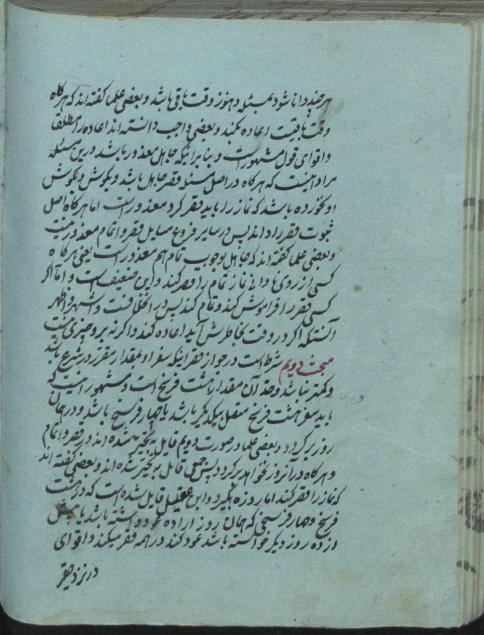 هر چند دانا شود بمسئله و هنوز وقت باقی باشد و بعضی علما گفته‌اند که هرگاه
وقت باقیست اعاده بکند و بعضی واجب دانسته‌اند اعاده را مطلقا
و اقوای قول مشهور است و بنا بر اینکه جاهل معذور باشد درین مسئله
مراد اینست که هرگاه در اصل مسئله قصر جاهل باشد و بگوش
او نخورده باشد که نماز را باید قصر کرد معذور است اما هرگاه اصل
ثبوت قصر را داند پس در سایر فروع مسایل قصر و اتمام معذور نیست
و بعضی علما گفته‌اند که جاهل بوجوب تمام هم معذور است یعنی هرگاه
کسی از روی نادانی نماز تمام را قصر کند و این ضعیف است و اما اگر
کسی قصر را فراموش کند و تمام کند پس در آن خلافست و اشهر و اظهر
آنستکه اگر در وقت بخاطرش آید اعاده کند و اگر نه بر او چیزی نیست
مبحث دویم شرط است در جواز قصر اینکه سفر او بمقدار مقرر در شرع باشد
و کمتر نباشد و حد آن مقدار تا هشت فرسخ است و مشهور است که
باید سفر هشت فرسخ متصل بیکدیگر باشد یا چهار فرسخ باشد و در همان
روز برگردد و بعضی علما در صورت دویم قایل بتخییر شده‌اند در قصر و اتمام
و هرگاه در آنروز نخواهد برگردد پس جمعی قائل بتخییر شده‌اند و بعضی گفته‌اند
که نماز را قصر کند اما روزه بگیرد و ابن عقیل قایل شده است که در هشت
فرسخ و چهار فرسخی که همان روز اراده عود داشته باشد یا پیش
از ده روز دیگر خواسته باشد عود کند در همه قصر میکند و اقوای
در نزد حقیر